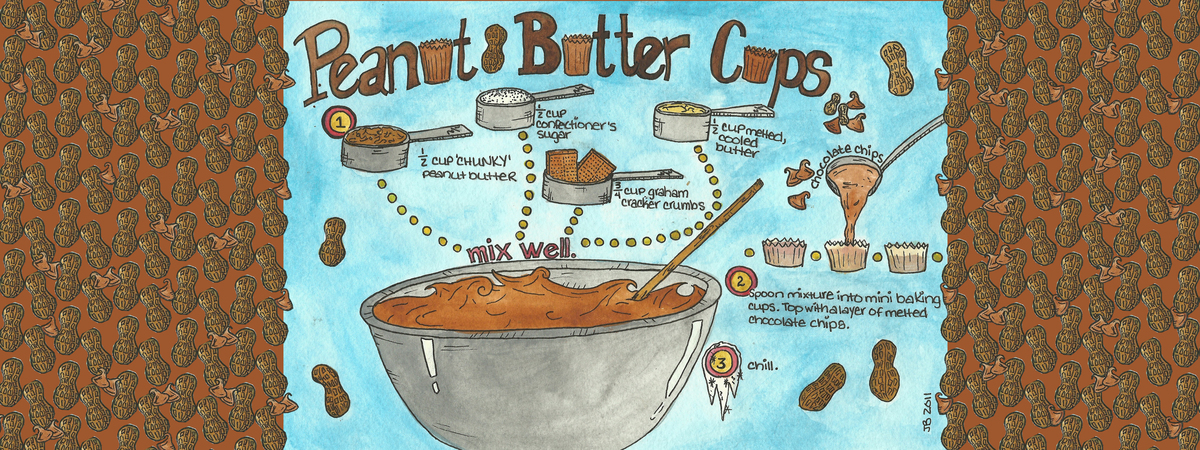 Peanut Butter Cups
1
1/2 cup 'CHUNKY'
peanut butter
1/2 cup
confectioner's
sugar
cup graham
cracker crumbs
1/2 cup melted,
cooled
butter
chocolate chips
mix well.
2
Spoon mixture into mini baking
cups. Top with a layer of melted
chocolate chips.
3
chill.
JB 2011